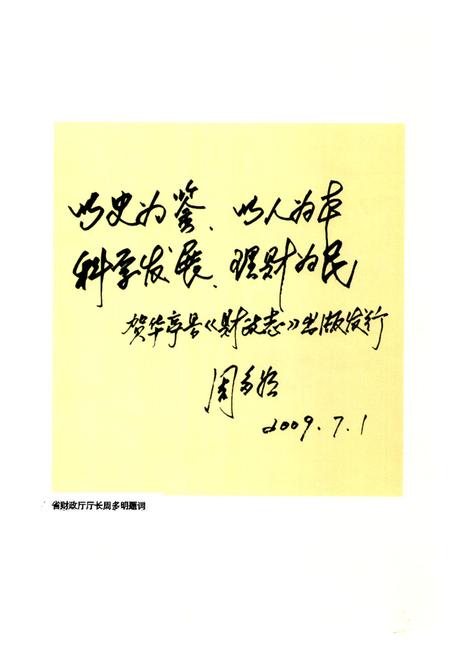 以史为鉴、以人为本
科学发展、理财为民
贺华亭县《财政志》出版发行
周多明
2009.7.1
省财政厅厅长周多明题词